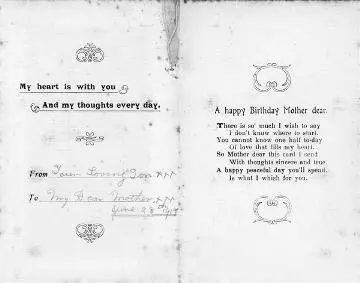 My heart is with you
And my thoughts every day.
From Your Loving Son xxx
To My Dear Mother xxx
June 28th 1917
A happy Birthday Mother dear.
There is so much I wish to say
I don't know where to start.
You cannot know one half to-day
Of love that fills my heart.
So Mother dear this card I send
With thoughts sincere and true
A happy peaceful day you'll spend.
Is what I which for you.